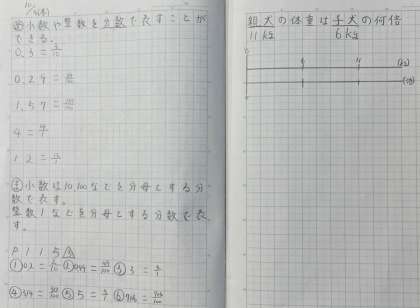 小数や整数を分数で表すことが
できる。
0.3 = 3/10
0.29 = 29/100
1.57 = 157/100
4 = 4/1
12 = 12/1
小数は10,100などを分母とする分
数で表す。
整数1などを分母とする分数で表
す。
P115
① 0.2 = 2/10 ② = /100 ③ 3 = 3/1
④ = /100 ⑤ 5 = 5/1 ⑥ = /100
親犬の体重は子犬の何倍
11kg 6kg
0 6 11 (kg)